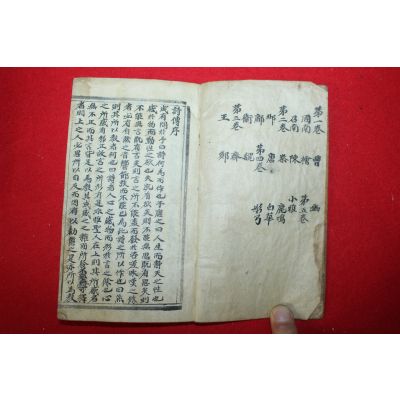 第一卷 曹 豳
周南 檜 第五卷
召南 陳 小雅
第二卷 秦 鹿鳴
邶 唐 白華
鄘 第四卷 彤弓
衛 魏
第三卷 齊
王 鄭
詩傳序
或有問於予曰詩何爲而作也予應之曰人生而靜天之性也
感於物而動性之欲也夫旣有欲矣則不能無思旣有思矣則
不能無言旣有言矣則言之所不能盡而發於咨嗟咏歎之餘
者必有自然之音響節族而不能已焉此詩之所以作也曰然
則其所以教者何也曰詩者人心之感物而形於言之餘也心
之所感有邪正故言之所形有是非惟聖人在上則其所感者
無不正而其言皆足以爲教其或感之之雜而所發不能無可擇
者則上之人必思所以自反而因有以勸懲之是亦所以爲教